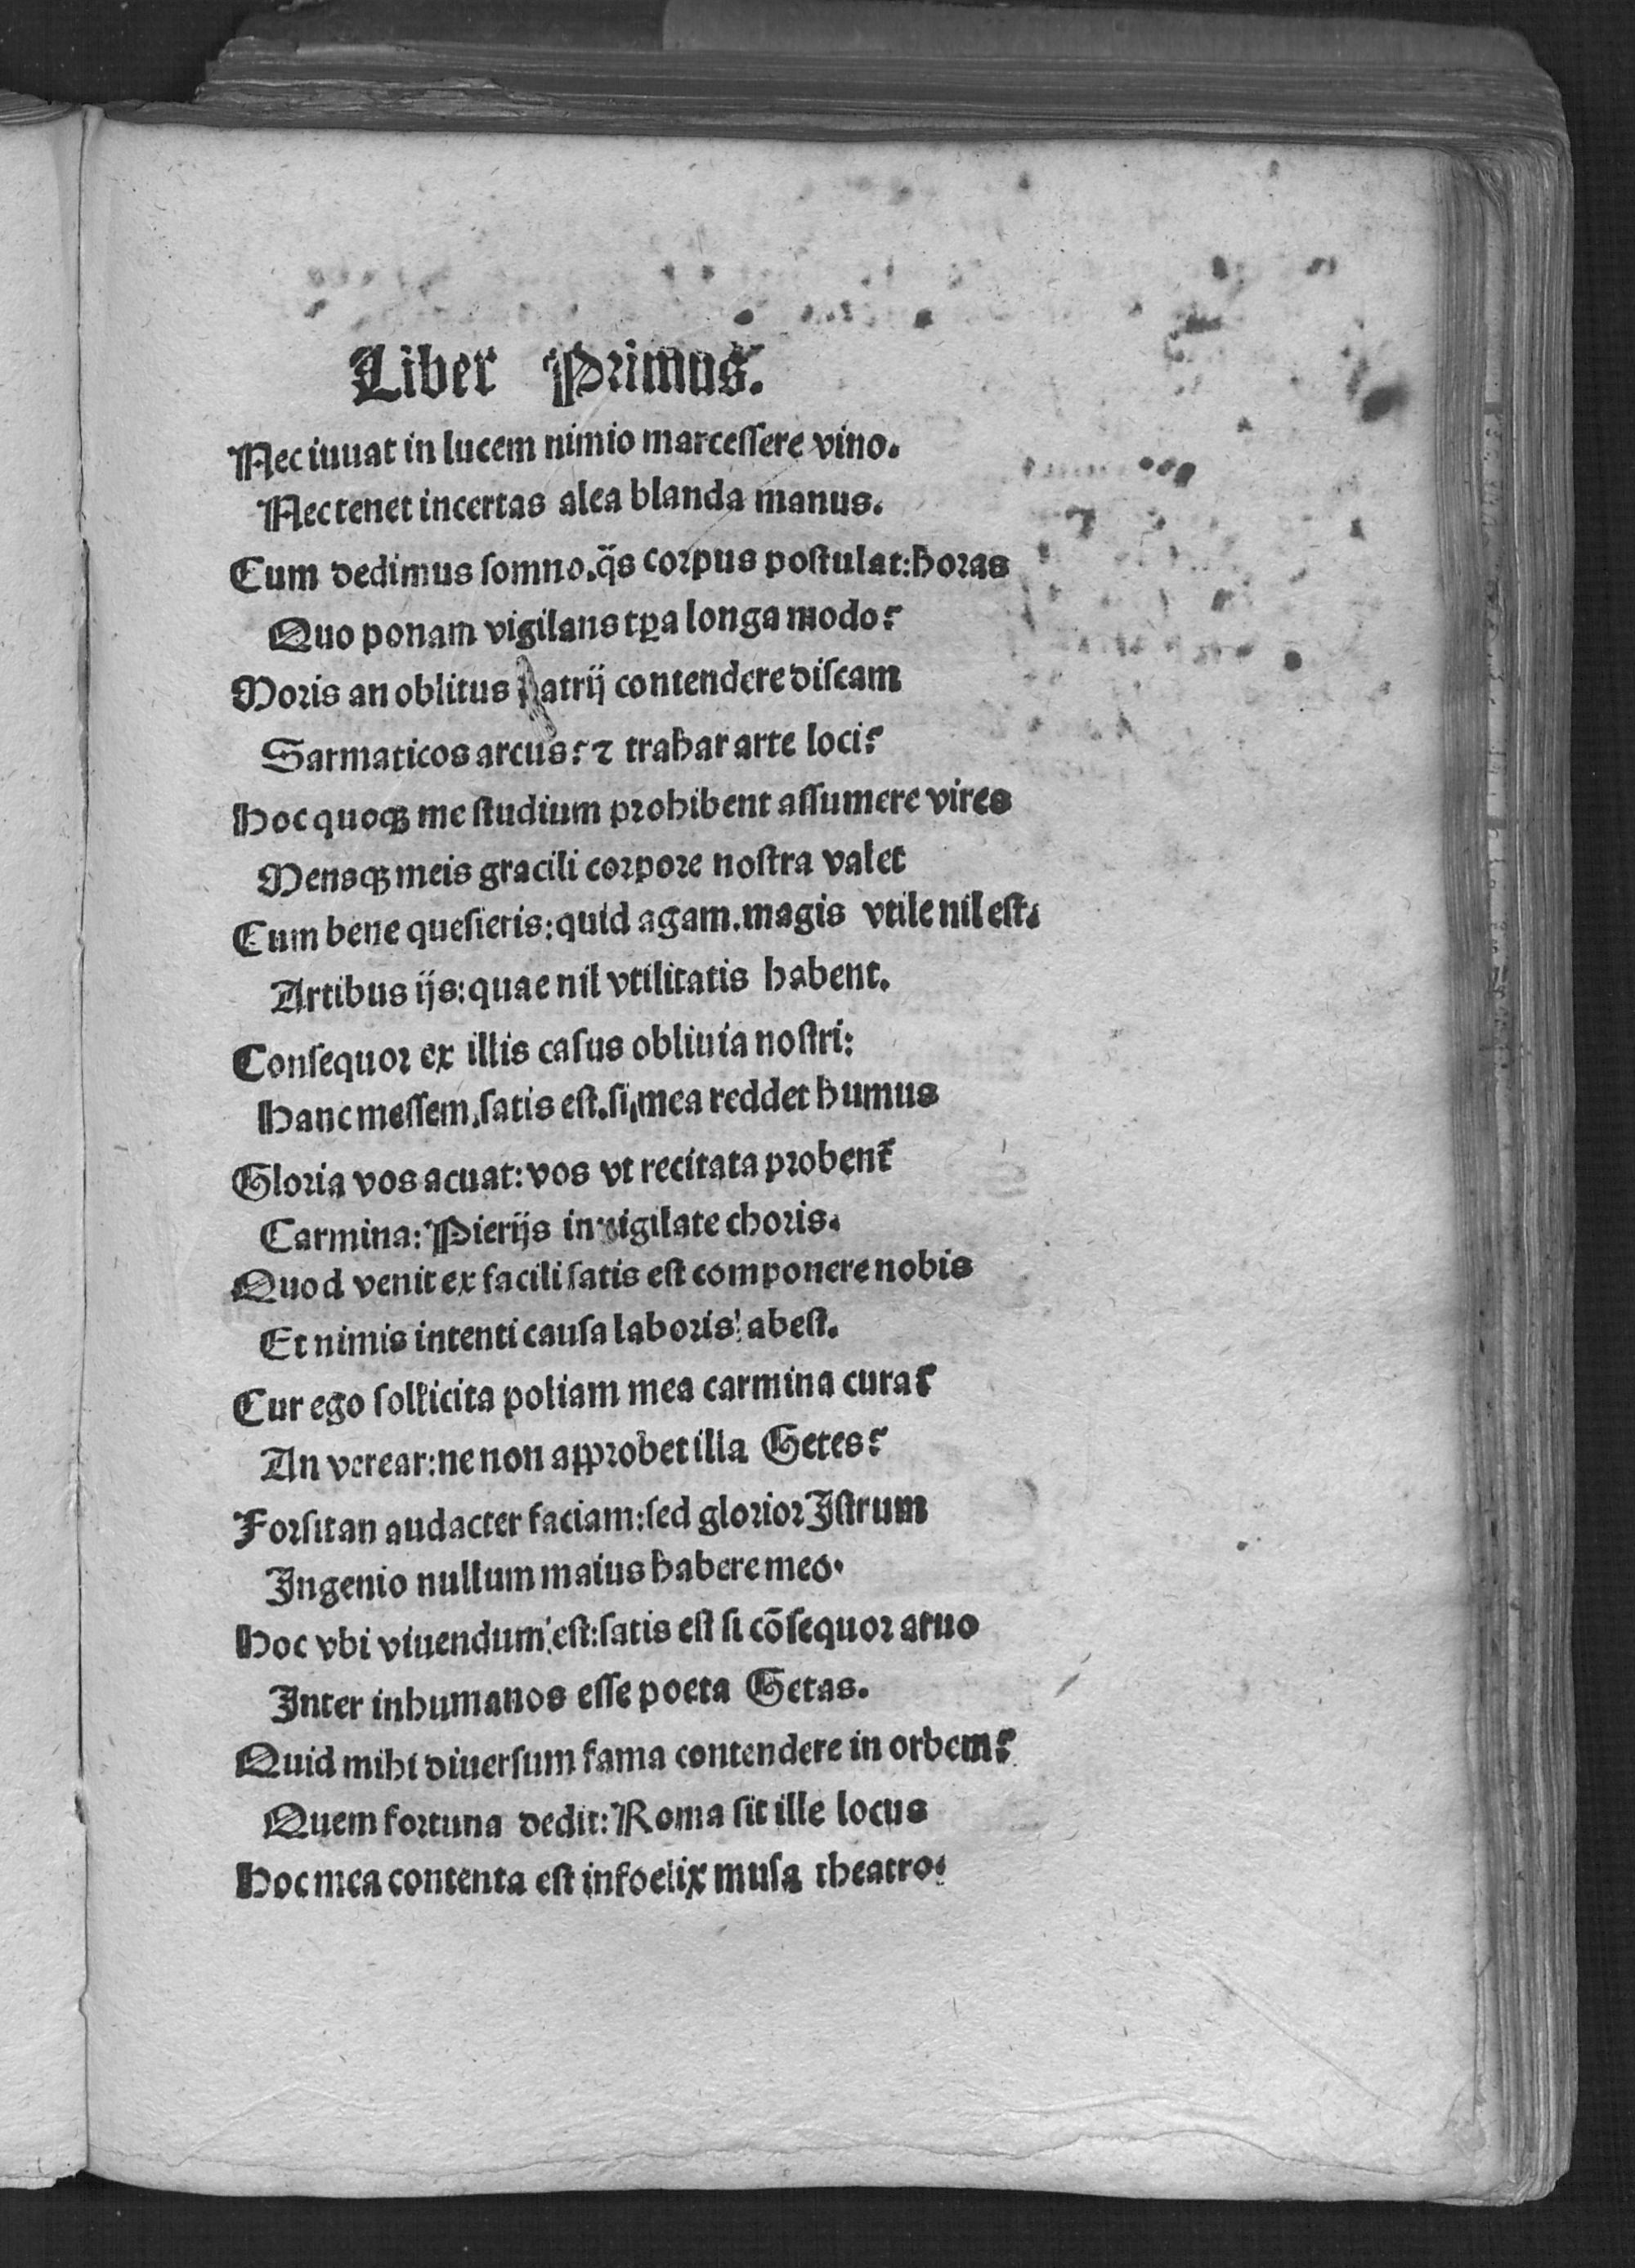 Liber Primus.
Nec iuuat in lucem nimio marcessere vino.
Nec tenet incertas alea blanda manus.
Cum dedimus somno.q̃s corpus postulat:horas
Quo ponam vigilans tp̱a longa modo?
Moris an oblitus patrij contendere discam
Sarmaticos arcus? ⁊ trahar arte loci?
Hoc quoqꝫ me studium prohibent assumere vires
Mensqꝫ meis gracili corpore nostra valet
Cum bene quesieris:quid agam.magis vtile nil est.
Artibus ijs:quae nil vtilitatis habent.
Consequor ex illis casus obliuia nostri:
Hanc messem,satis est.si,mea reddet humus
Gloria vos acuat:vos vt recitata probent᷑
Carmina:Pierijs invigilate choris.
Quod venit ex facili satis est componere nobis
Et nimis intenti causa laboris abest.
Cur ego sollicita poliam mea carmina cura?
An verear:ne non approbet illa Getes?
Forsitan audacter faciam:sed glorior Istrum
Ingenio nullum maius habere meo.
Hoc vbi viuendum est:satis est si cõsequor aruo
Inter inhumanos esse poeta Getas.
Quid mihi diuersum fama contendere in orbem?
Quem fortuna dedit:Roma sit ille locus
Hoc mea contenta est infoelix musa theatro.